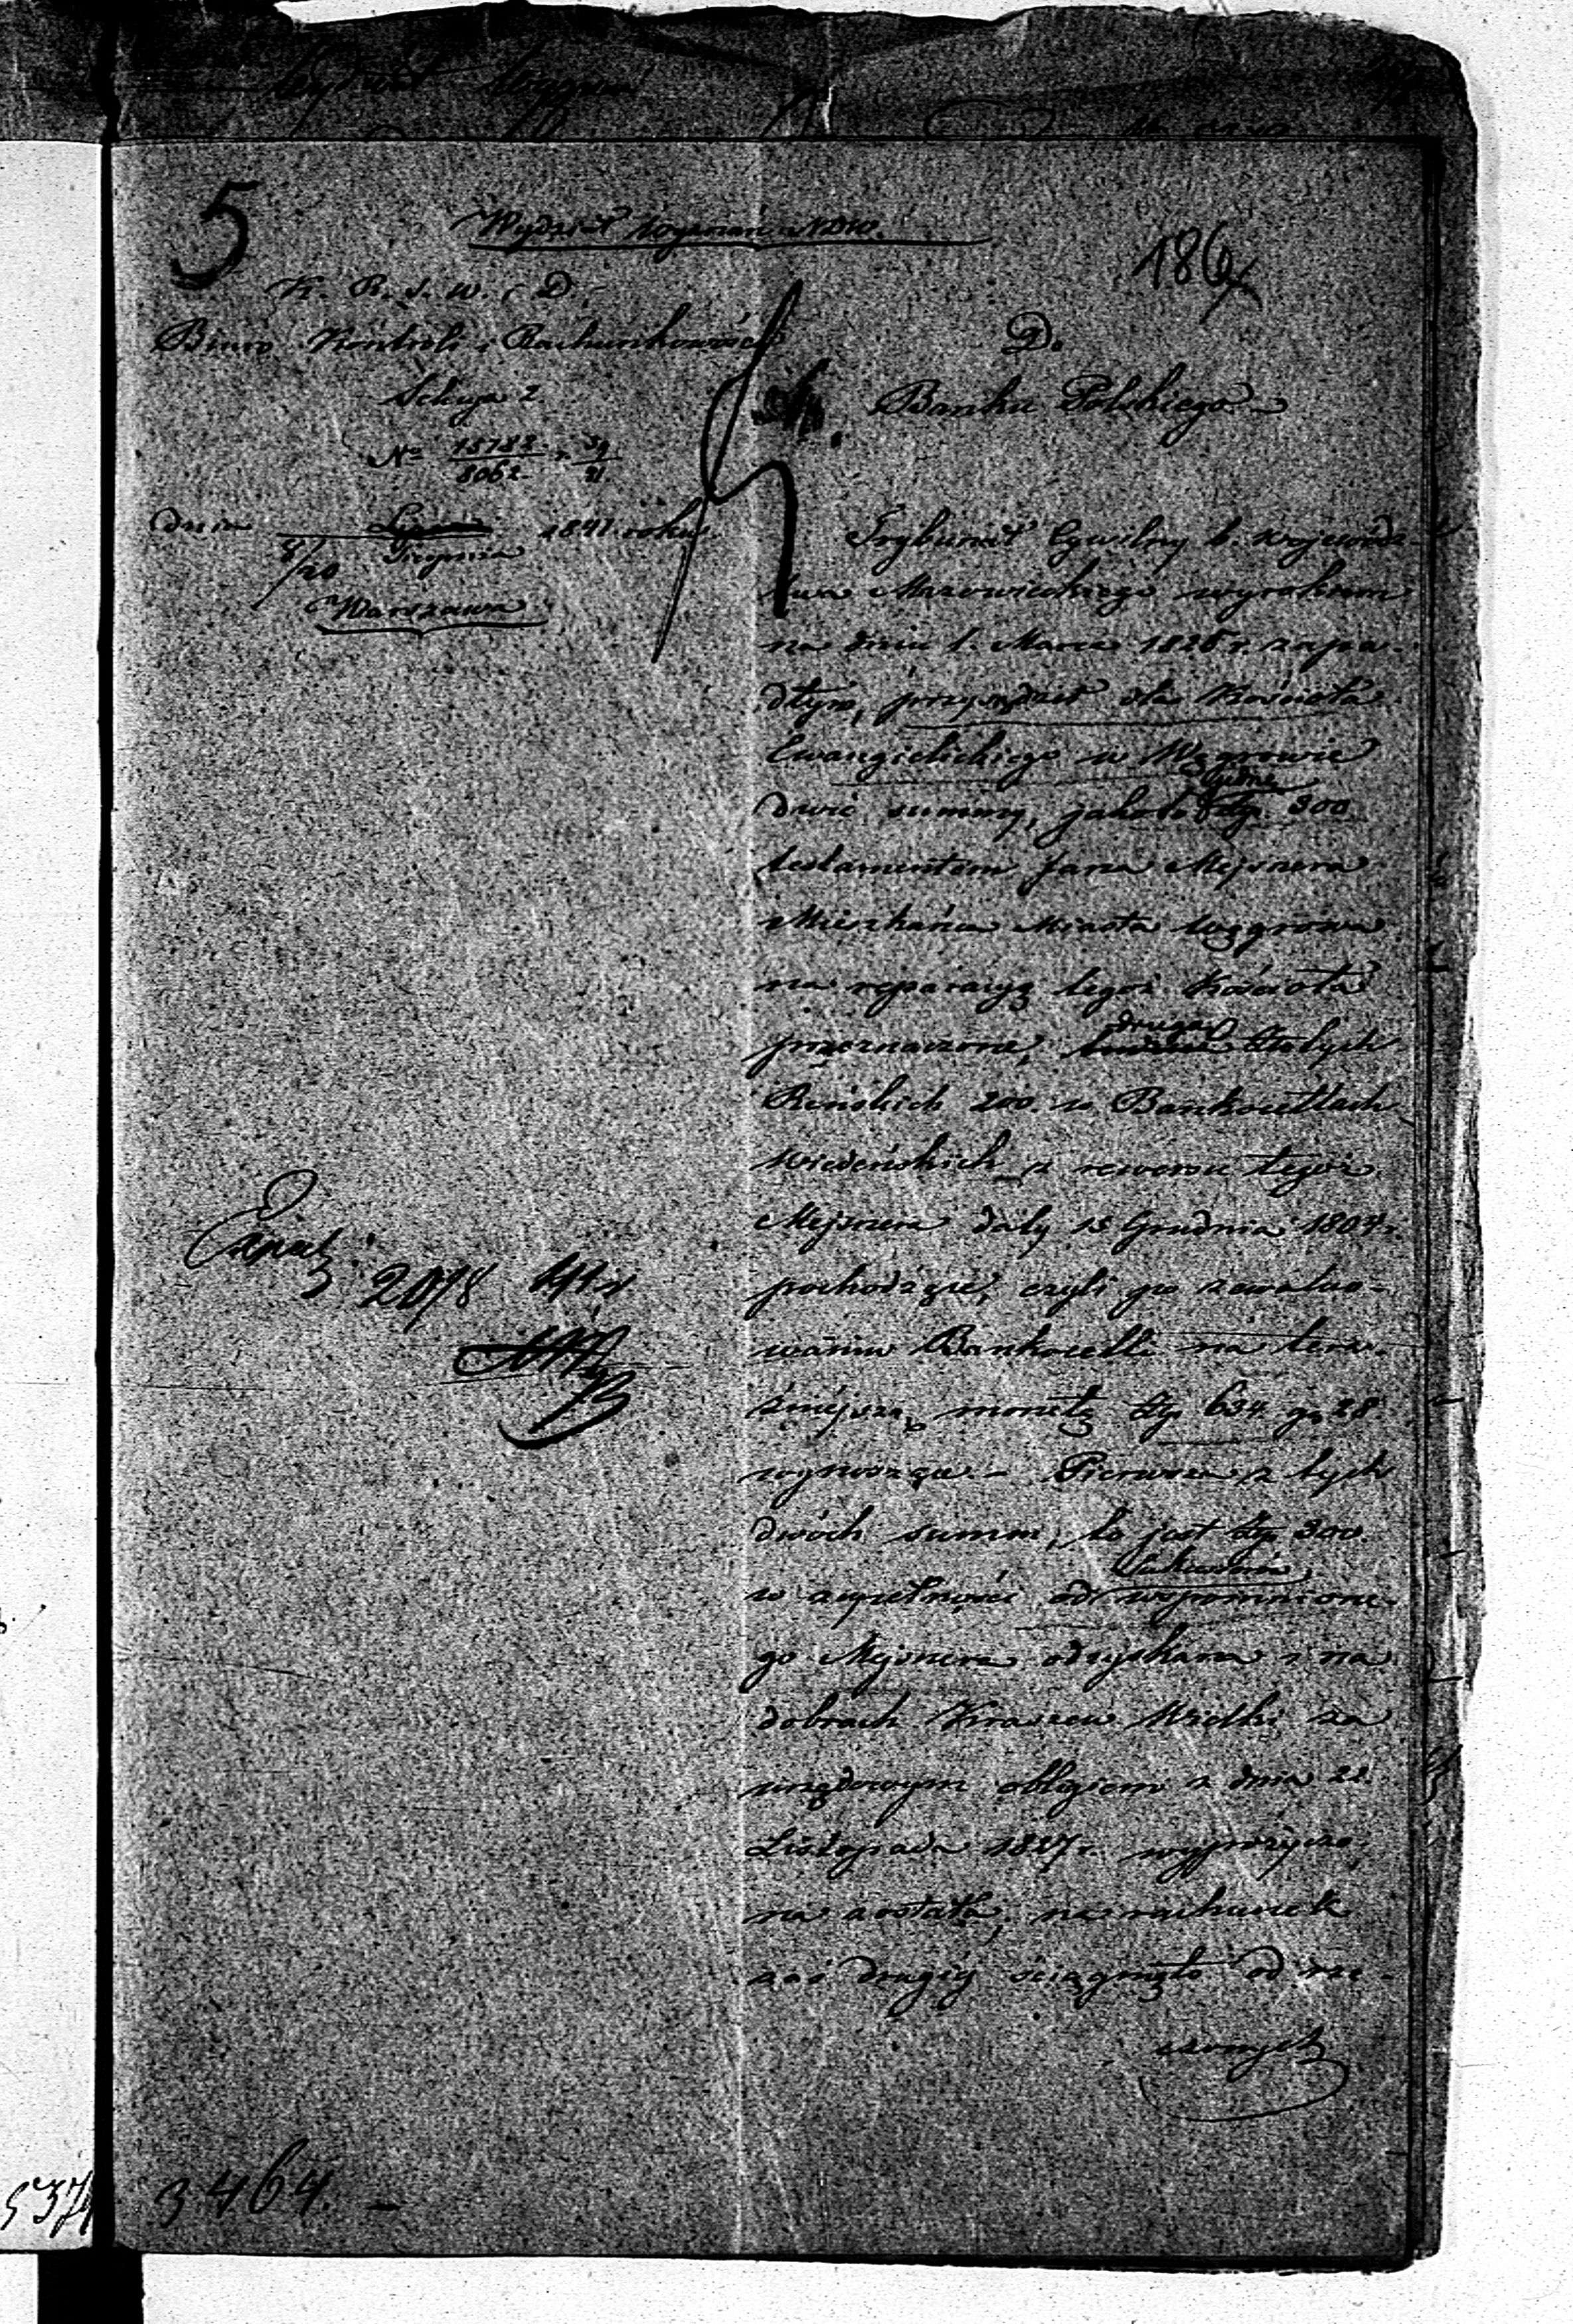 5
Wydział Wyznań NDW.
186
K. R. S. W. i D.
Biuro Kontroli i Rachunkowości
Sekcya 2
No 15782/8062
dnia 8/20 Lipca Sierpnia 1841 roku
Warszawa
Do
Banku Polskiego
Trybunał Cywilny b. Wojewódz-
twa Mazowieckiego wyrokiem
na dniu 1. Marca 1826 r. zapa-
dłym, przysądził dla Kościoła
Ewangielickiego w Węgrowie
dwie summy, jako to: jedną Złp 300
testamentem Jana Mejsnera
Mieszkańca Miasta Węgrowa
na reparacyą tegoż Kościoła
przeznaczone, drugą Złotych
Reńskich 200. w Bankocetlach
Wiedeńskich z rewersu tegoż
Mejsnera daty 13 Grudnia 1807 r.
pochodzące, czyli po zewalwo-
waniu Bankocetli na teraź-
niejszą monetę Złp 634 gr 28
wynoszące. - Pierwsza z tych
dwóch summ, to jest Złp 300.
w zupełności od Sukcessorów wspomnione-
go Mejsnera odzyskana i na
dobrach Kraszew Wielki za
urzędowym obligiem z dnia 22.
Listopada 1827 r. wypożyczo-
na została, na rachunek
zaś drugiej ściągnięto od rze-
czonych
20/8 41 r
3464. -
537